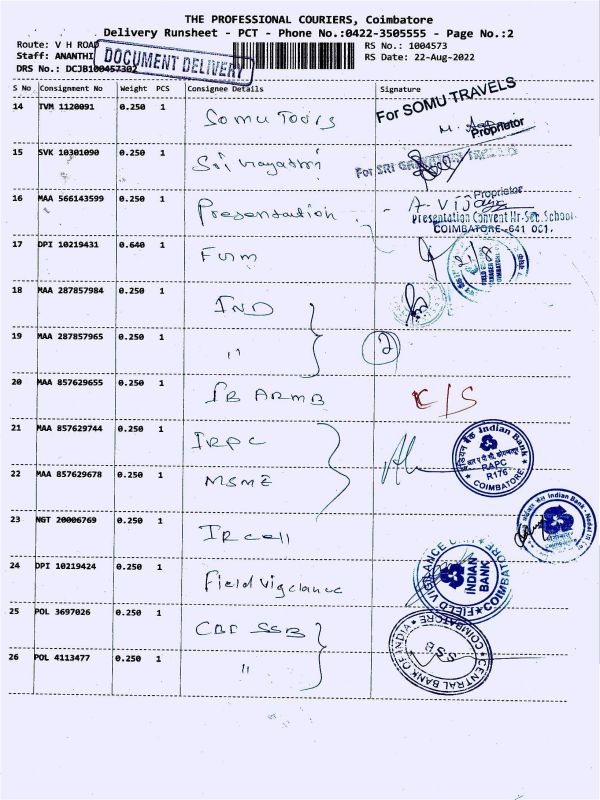 THE PROFESSIONAL COURIERS, Coimbatore
Delivery Runsheet - PCT - Phone No.:0422-3505555 - Page No.:2
Route: V H ROAD
RS No.: 1004573
Staff: ANANTHI
RS Date: 22-Aug-2022
DRS No.: DCJB100457302
DOCUMENT DELIVERY
S No Consignment No Weight PCS Consignee Details Signature
14 TVM 1120091 0.250 1 Somu Tours
For SOMU TRAVELS
Proprietor
15 SVK 10301090 0.250 1 Sri
For SRI
Proprietor
16 MAA 566143599 0.250 1 Presentation
A. Vijaya
Presentation Convent Hr. Sec. School
COIMBATORE-641 001.
17 DPI 10219431 0.640 1
21/8
18 MAA 287857984 0.250 1 IND
19 MAA 287857965 0.250 1 "
2
20 MAA 857629655 0.250 1 IB ARMB
C/S
21 MAA 857629744 0.250 1 IRPC
Indian Bank
RAPC
R176
COIMBATORE
22 MAA 857629678 0.250 1 MSME
23 NGT 20006769 0.250 1 IR cell
Indian Bank
24 DPI 10219424 0.250 1 Field Vigilance
FIELD VIGILANCE UNIT COIMBATORE
INDIAN
BANK
25 POL 3697026 0.250 1 CBI SSB
CENTRAL BANK OF INDIA
COIMBATORE
SSB
26 POL 4113477 0.250 1 "